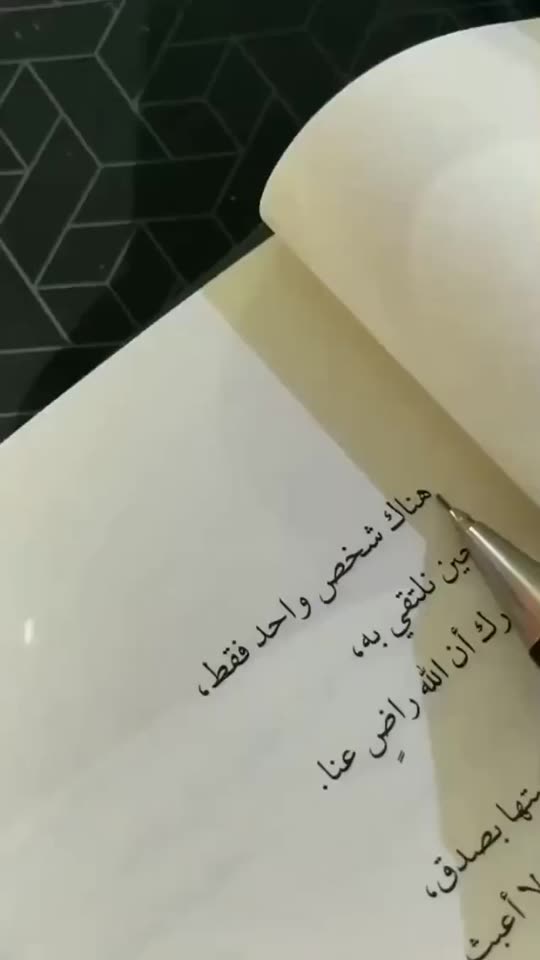 هناك شخص واحد فقط،
حين نلتقي به،
أن الله راضٍ عنا.
بصدق،
لا أعبث